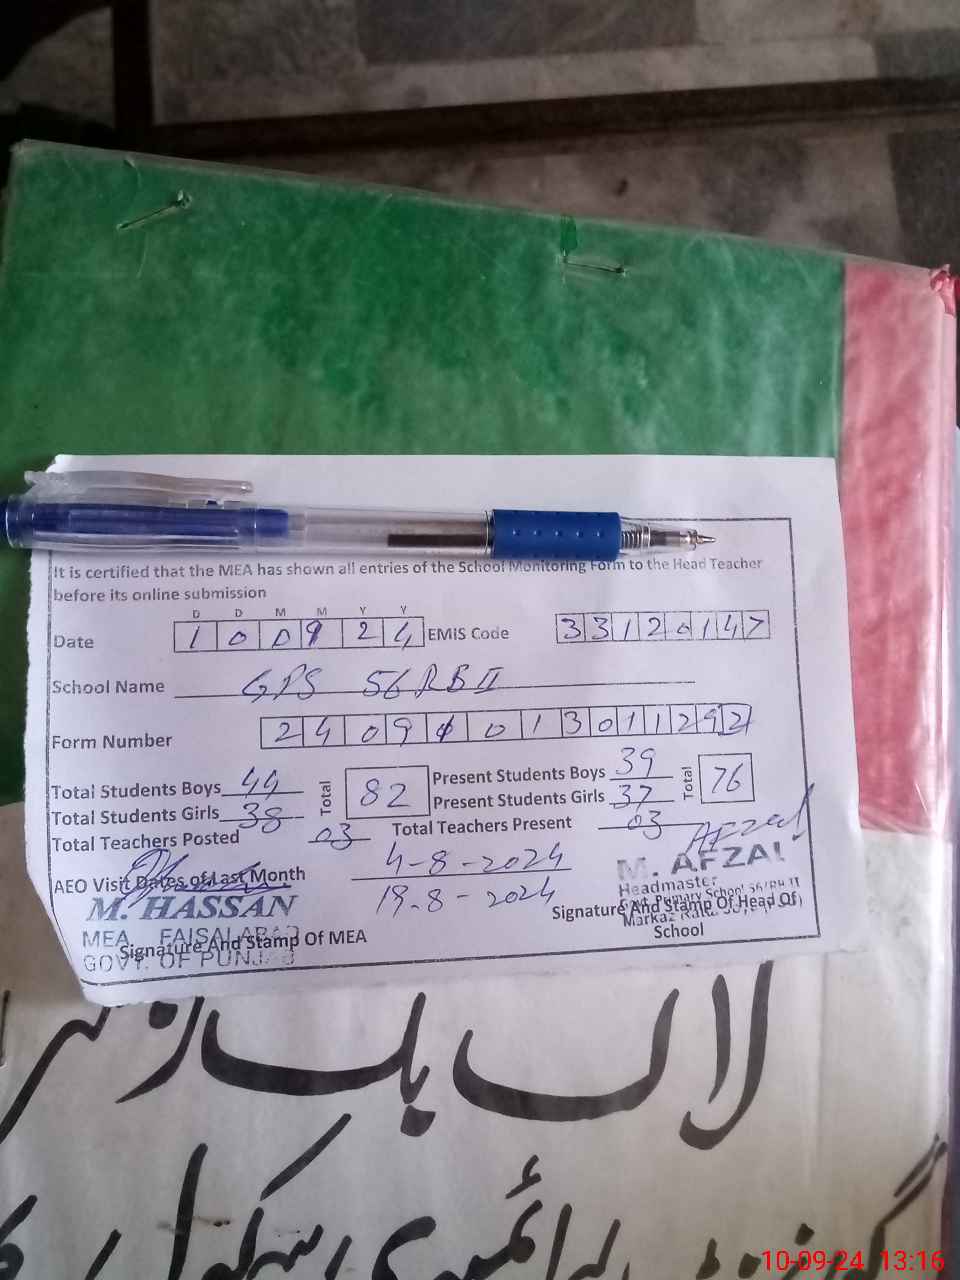 It is certified that the MEA has shown all entries of the School Monitoring Form to the Head Teacher
before its online submission
D D M M Y Y
Date 1 0 0 9 2 4 EMIS Code 3 3 1 2 0 1 4 7
School Name GPS 56 RB II
Form Number 2 4 0 9 0 0 1 3 0 1 1 2 9 2
Total Students Boys 44 Total 82 Present Students Boys 39 Total 76
Total Students Girls 38 Present Students Girls 37
Total Teachers Posted 03 Total Teachers Present 03
Afzal
AEO Visit Dates of Last Month 4-8-2024
19-8-2024
M. HASSAN
MEA FAISALABAD
GOVT. OF PUNJAB
Signature And Stamp Of MEA
M. AFZAL
Headmaster
Govt. Primary School 56/RB II
Markaz
Signature And Stamp Of Head Of
School
لاگ بک
پرائمری سکول
10-09-24 13:16